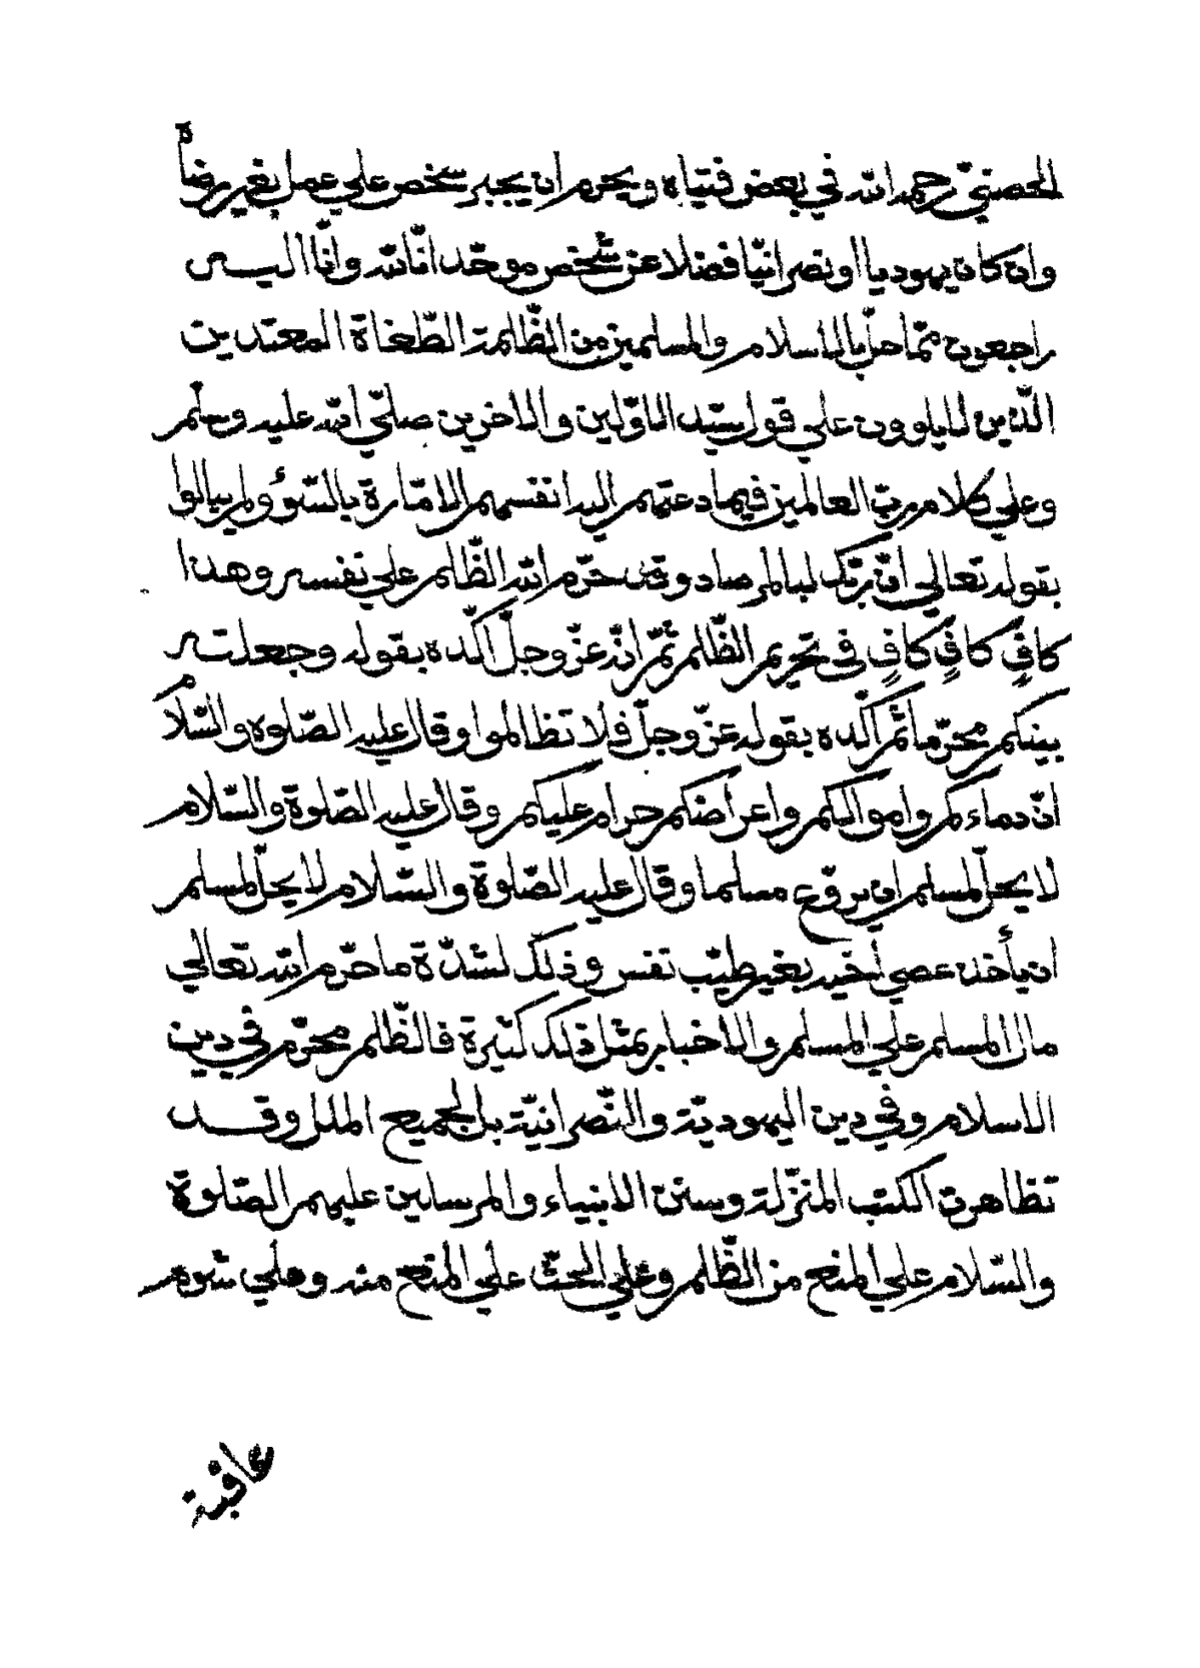 الحصنيّ رحمه الله في بعض فتياه ويحرم ان يجبر شخص علي عمل بغير رضاه
وان كان يهوديا او نصرانيّا فضلا عن شخص موحّد انّا لله وانّا اليه
راجعون ممّا حلّ بالاسلام والمسلمين من الظّلمة الطّغاة المعتدين
الّذين لا يلوون علي قول سيّد الاوّلين والاخرين صلّي الله عليه وسلّم
وعلي كلام ربّ العالمين فيما دعتهم اليه انفسهم الامّارة بالسّوء ولم يبالوا
بقوله تعالي انّ ربّك لبالمرصاد وقد حرّم الله الظّلم علي نفسه وهذا
كافٍ كافٍ كافٍ في تحريم الظّلم ثمّ انّه عزّ وجلّ اكّده بقوله وجعلته
بينكم محرّما ثمّ اكّده بقوله عزّ وجلّ فلا تظالموا وقال عليه الصّلوة والسّلام
انّ دماءكم واموالكم واعراضكم حرام عليكم وقال عليه الصّلوة والسّلام
لا يحلّ لمسلم ان يروّع مسلما وقال عليه الصّلوة والسّلام لا يحلّ لمسلم
ان يأخذ عصي أخيه بغير طيّب نفس وذلك لشدّة ما حرّم الله تعالي
مال المسلم علي المسلم والاخبار بمثل ذلك كثيرة فالظّلم محرّم في دين
الاسلام وفي دين اليهوديّة والنّصرانيّة بل الجميع الملل وقد
تظاهرت الكتب المنزّلة وسنن الانبياء والمرسلين عليهم الصّلوة
والسّلام علي المنع من الظّلم وعلي الحثّ علي المنع منه وعلي شوم
عاقبة